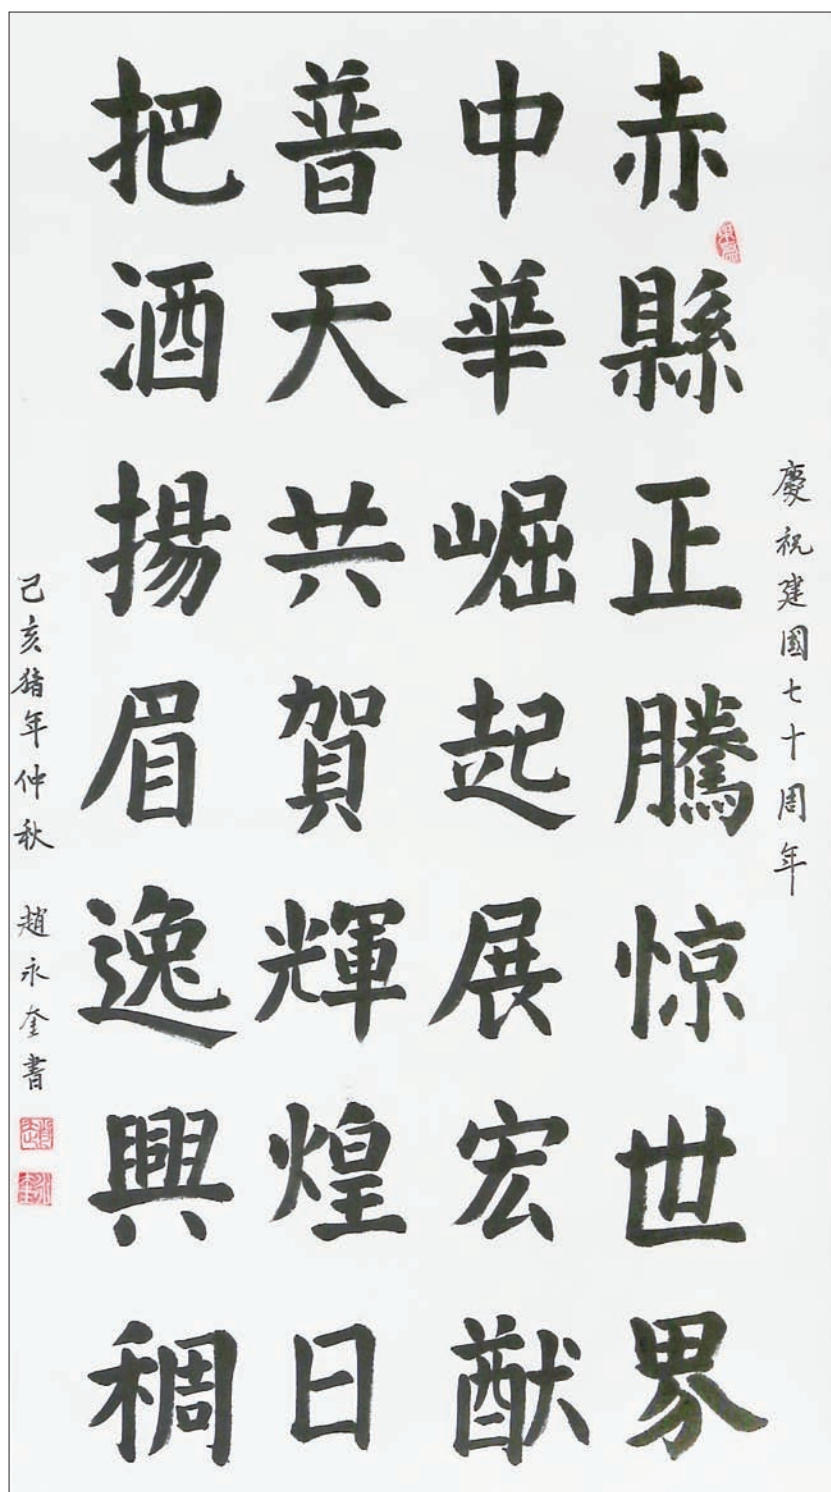 慶祝建國七十周年
赤縣正騰惊世界
中華崛起展宏猷
普天共賀輝煌日
把酒揚眉逸興稠
己亥猪年仲秋 趙永奎書